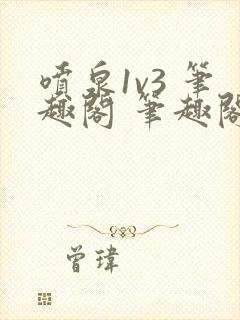 噴泉1v3 筆
趣閣 筆趣閣
曾瑋